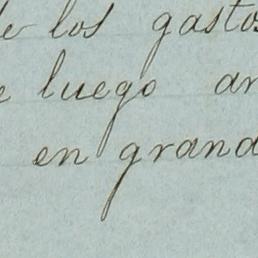 de los gastos
luego
en grand